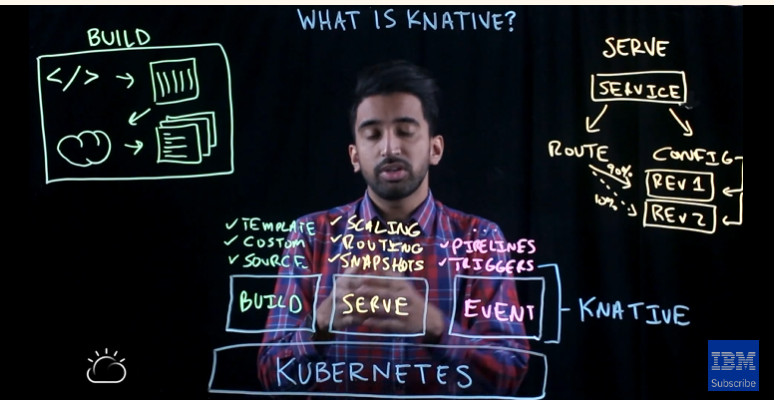 WHAT IS KNATIVE?
BUILD
</>
SERVE
SERVICE
ROUTE
CONFIG
90%
REV 1
10%
REV 2
✓ TEMPLATE
✓ CUSTOM
✓ SOURCE
✓ SCALING
✓ ROUTING
✓ SNAPSHOTS
...
✓ PIPELINES
✓ TRIGGERS
BUILD
SERVE
EVENT
KNATIVE
KUBERNETES
IBM
Subscribe